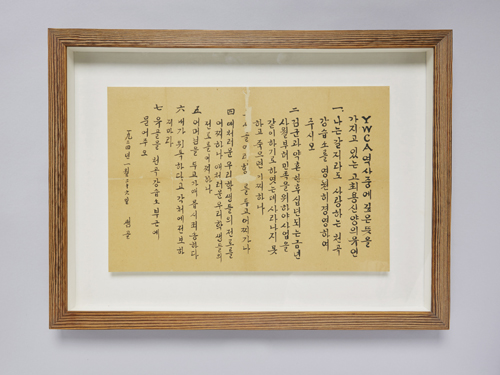 YWCA 역사중에
가지고 있는 고 최용신양의 유언
一、나는 갈지라도 사랑하는 천곡
강습소를 영원히 경영하여
주시오
二 김군과 약혼한후 십년되는 금년
사월부터 민족을 위하야 사업을
같이하기로 하였는데 사라나지 못
하고 죽으면 어찌하나
를 두고 어찌가나
四 애처러운 우리학생들의 전로를
어찌하나 애처러운 우리학생들의
전로를 어찌하나
五 어머님을 두고가매 몹시 죄송하다
六 내가 위독하다고 각처에 전보하
지마라
七 유골을 천곡강습소 부근에
묻어주오